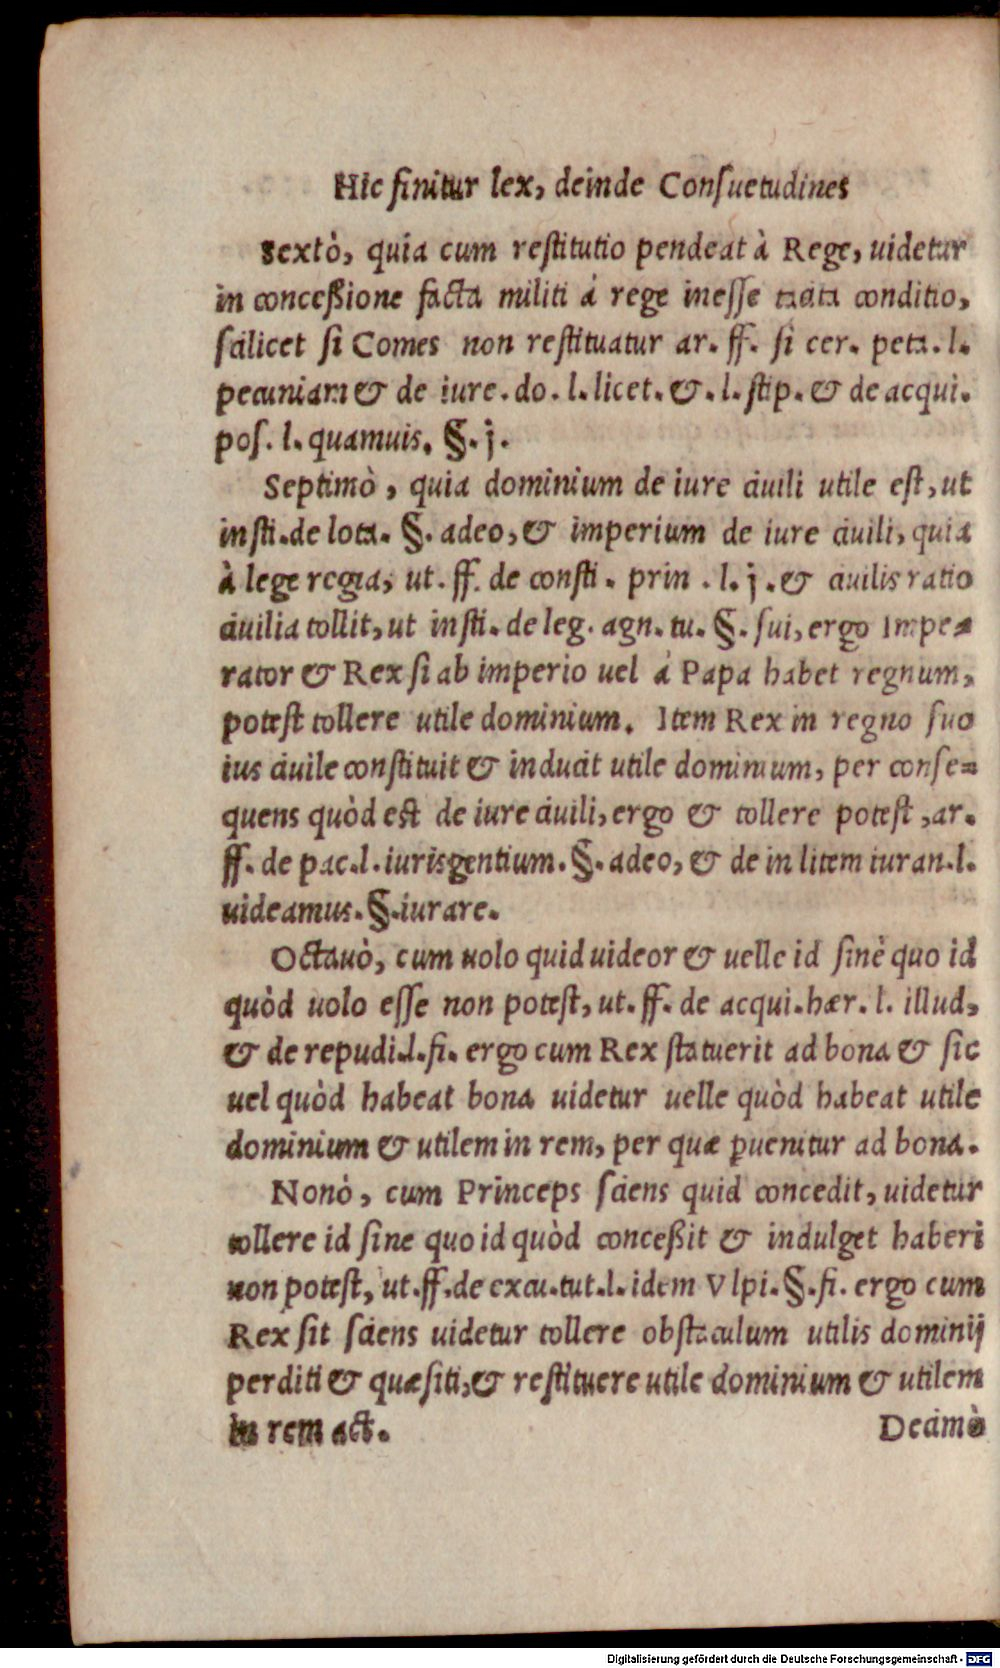 Hic finitur lex, deinde Consuetudines
Sextò, quia cum restitutio pendeat à Rege, uidetur
in conceßione facta militi á rege inesse tacita conditio,
scilicet si Comes non restituatur ar. ff. si cer. peta. l.
pecuniam & de iure. do. l. licet. &. l. stip. & de acqui.
pos. l. quamuis. §. j.
Septimò, quia dominium de iure ciuili utile est, ut
insti. de lota. §. adeo, & imperium de iure ciuili, quia
à lege regia, ut. ff. de consti. prin. l. j. & ciuilis ratio
ciuilia tollit, ut insti. de leg. agn. tu. §. sui, ergo Impe=
rator & Rex si ab imperio uel á Papa habet regnum,
potest tollere utile dominium. Item Rex in regno suo
ius ciuile constituit & inducit utile dominium, per conse=
quens quòd est de iure ciuili, ergo & tollere potest, ar.
ff. de pac. l. iurisgentium. §. adeo, & de in litem iuran. l.
uideamus. §. iurare.
Octauò, cum uolo quid uideor & uelle id sinè quo id
quòd uolo esse non potest, ut. ff. de acqui. hær. l. illud,
& de repudi. l. fi. ergo cum Rex statuerit ad bona & sic
uel quòd habeat bona uidetur uelle quòd habeat utile
dominium & utilem in rem, per quæ ꝑuenitur ad bona.
Nonò, cum Princeps sciens quid concedit, uidetur
tollere id sine quo id quòd conceßit & indulget haberi
non potest, ut. ff. de excu. tut. l. idem Vlpi. §. fi. ergo cum
Rex sit sciens uidetur tollere obstaculum utilis dominij
perditi & quæsiti, & restituere utile dominium & utilem
in rem act.
Decimò
Digitalisierung gefördert durch die Deutsche Forschungsgemeinschaft - DFG